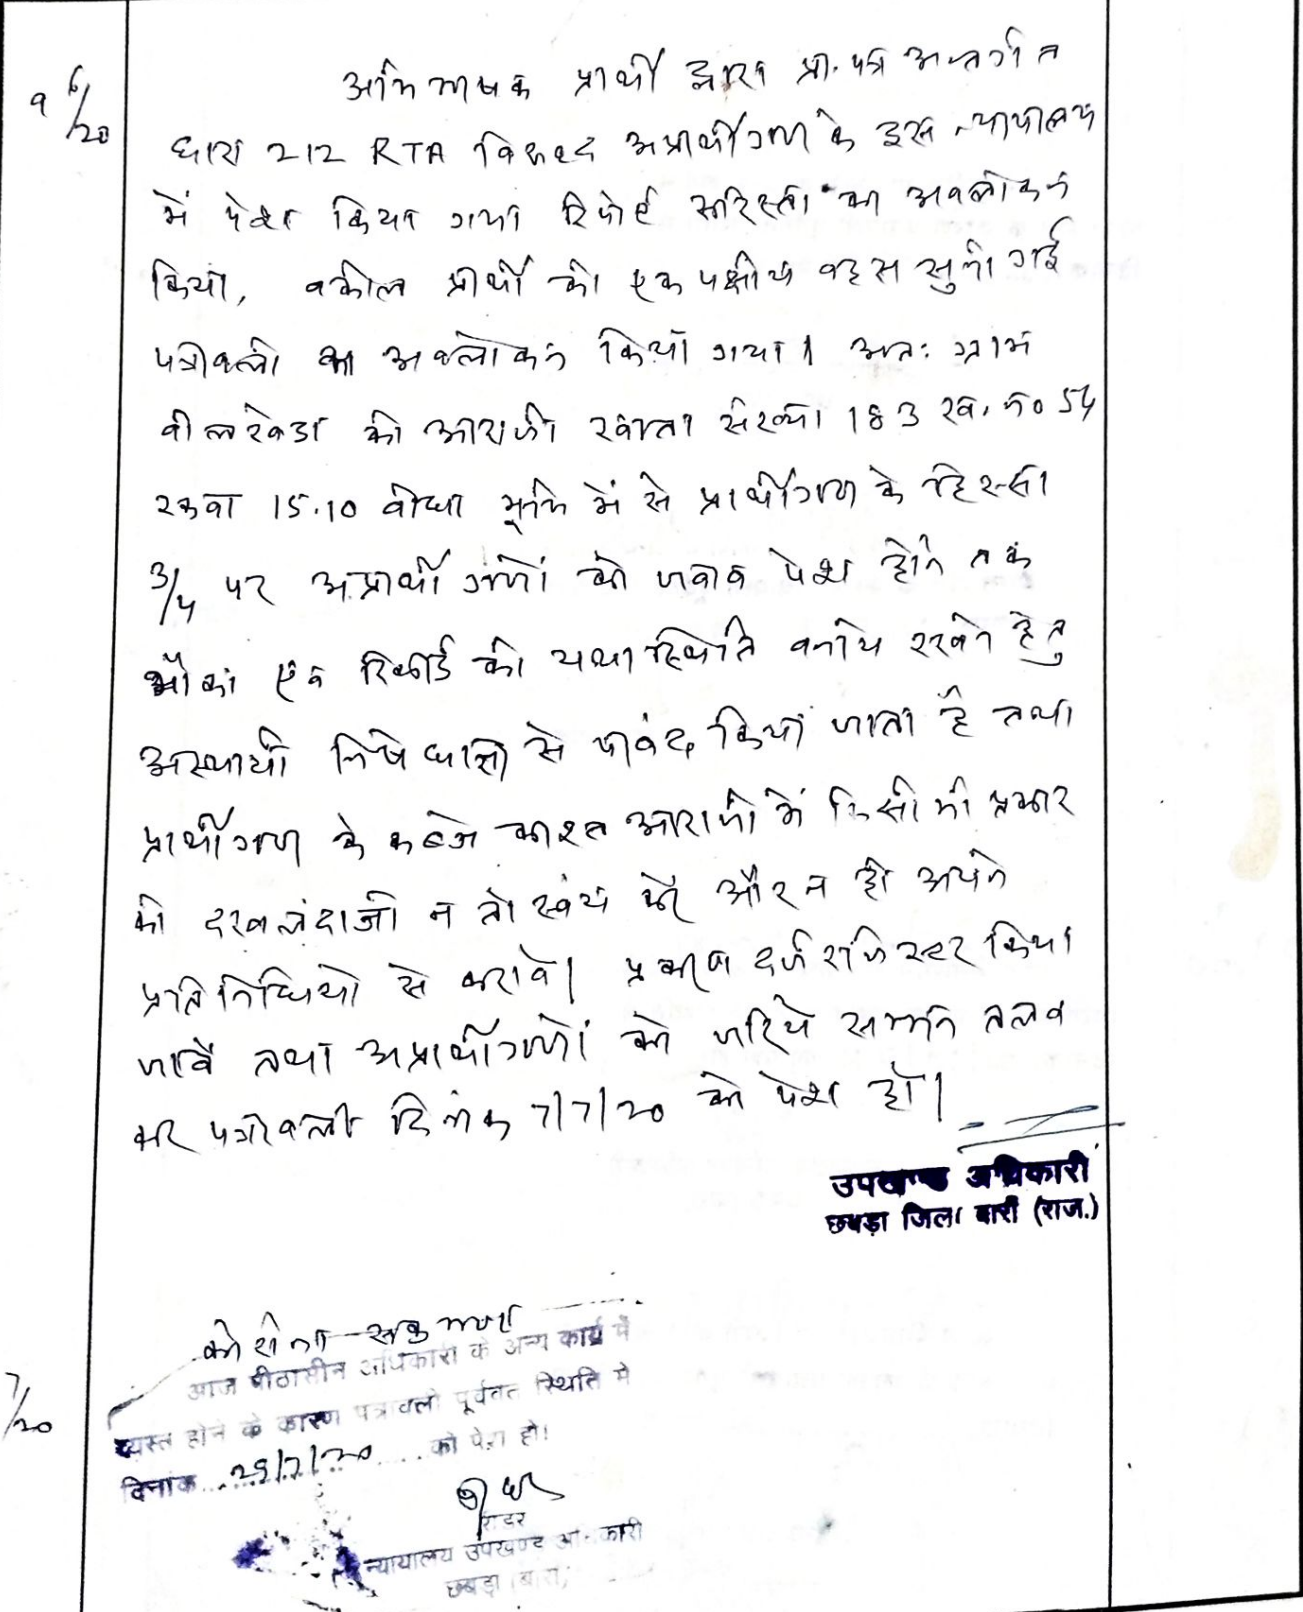 9 6/20
अभिभाषक प्रार्थी द्वारा प्रा. पत्र अन्तर्गत
धारा 212 RTA विरुद्ध अप्रार्थीगण के इस न्यायालय
में पेश किया गया रिपोर्ट सरिस्ता का अवलोकन
किया, वकील प्रार्थी की एक पक्षीय बहस सुनी गई
पत्रावली का अवलोकन किया गया। अतः ग्राम
बीलखेडा की आराजी खाता संख्या 183 ख. नं० 54
रकबा 15.10 बीघा भूमि में से प्रार्थीगण के हिस्सा
3/4 पर अप्रार्थीगणों को जवाब पेश होने तक
मौका एवं रिकॉर्ड की यथास्थिति बनाये रखने हेतु
अस्थायी निषेधाज्ञा से पाबंद किया जाता है तथा
प्रार्थीगण के कब्जे काश्त आराजी में किसी भी प्रकार
की दखलंदाजी न तो स्वंय करें और न ही अपने
प्रतिनिधियो से करावे। प्रकरण दर्ज रजिस्टर किया
जावे तथा अप्रार्थीगणों को जरिये सम्मन तलब
कर पत्रावली दिनांक 7/7/20 को पेश हो।
उपखण्ड अधिकारी
छबड़ा जिला बारां (राज.)
7/20
आज पीठासीन अधिकारी के अन्य कार्य में
व्यस्त होने के कारण पत्रावली पूर्ववत स्थिति मे
दिनांक 29/7/20 को पेश हो।
रीडर
न्यायालय उपखण्ड अधिकारी
छबड़ा (बारां)